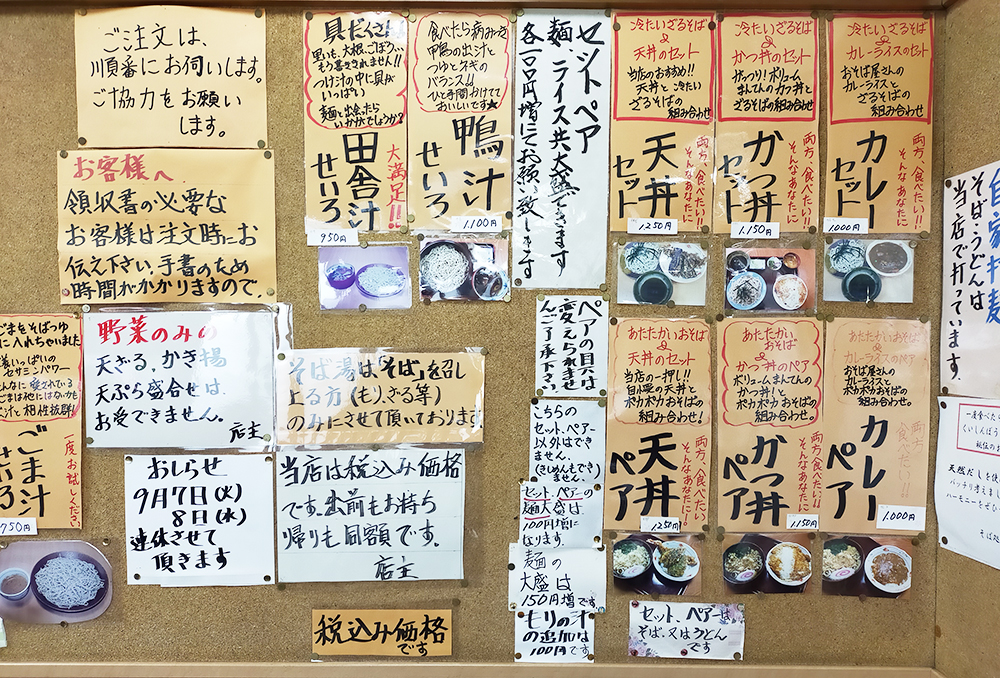 ご注文は、
川順番にお伺いします。
ご協力をお願い
します。
お客様へ
領収書の必要な
お客様は注文時にお
伝え下さい。手書のため
時間がかかりますので。
ごまをそばつゆ
に入れちゃいました
セサミンパワー
ごま汁
せいろ
一度お試しください
750円
野菜のみの
天ざる、かき揚
天ぷら盛合せは、
お受できません。
店主
おしらせ
9月7日(火)
8日(水)
連休させて
頂きます
そば湯は「そば」を召し
上る方(もり、ざる等)
のみにさせて頂いております
当店は税込み価格
です。出前もお持ち
帰りも同額です。
店主
税込み価格
です
具だくさん
里いも、大根、ごぼう…
もう書ききれません!!
つけ汁の中に具が
いっぱい
麺と出会ったら
いかがでしょうか?
田舎汁
せいろ
大満足!!
950円
食べたら病みつき
甲鳥の出汁と
つゆとネギの
バランス!!
ひと手間かけてて
おいしいです★
鴨汁
せいろ
1.100円
セット ペア
麺、ライス共大盛できます
各一〇〇円増にてお願い致します
冷たいざるそば
&
天丼のセット
当店のおすすめ!!
天丼と冷たい
ざるそばの組み合わせ
両方、食べたい!!
そんなあなたに
天丼
セット
1250円
冷たいざるそば
&
かつ丼のセット
ガッツリ!ボリューム
まんてんのカツ丼と
ざるそばの組み合わせ
両方、食べたい!!
そんなあなたに
かつ丼
セット
1.150円
冷たいざるそば
&
カレーライスのセット
おそば屋さんの
カレーライスと
ざるそばの
組み合わせ
両方、食べたい!!
そんなあなたに
カレー
セット
1000円
ペアの丼具は
変えられませ
んご了承下さい。
こちらの
セット、ペアー
以外はでき
ません。
(きしめんもでき
ません。)
セット、ペアーの
麺大盛は
100円増に
なります。
麺の
大盛は
150円増です。
モリの汁
の追加は
100円です
あたたかいおそば
&
天丼のセット
当店の一押し!!
自慢の天丼と
ポカポカおそばの
組み合わせ!
両方、食べたい
そんなあなたに!
天丼
ペア
1250円
あたたかい
おそば
&
かつ丼のペア
ボリュームまんてんの
かつ丼!と
ポカポカおそばの
組み合わせ!
両方、食べたい!!
そんなあなたに
かつ丼
ペア
1.150円
あたたかいおそば
&
カレーライスのペア
おそば屋さんの
カレーライスと
ポカポカおそばの
組み合わせ
両方
食べたい!!
カレー
ペア
1.000円
セット、ペアーは
そば、又はうどん
です
自家打麺
そば・うどんは
当店で打っています。
一度食べたら
くいしんぼう
天然だしを使